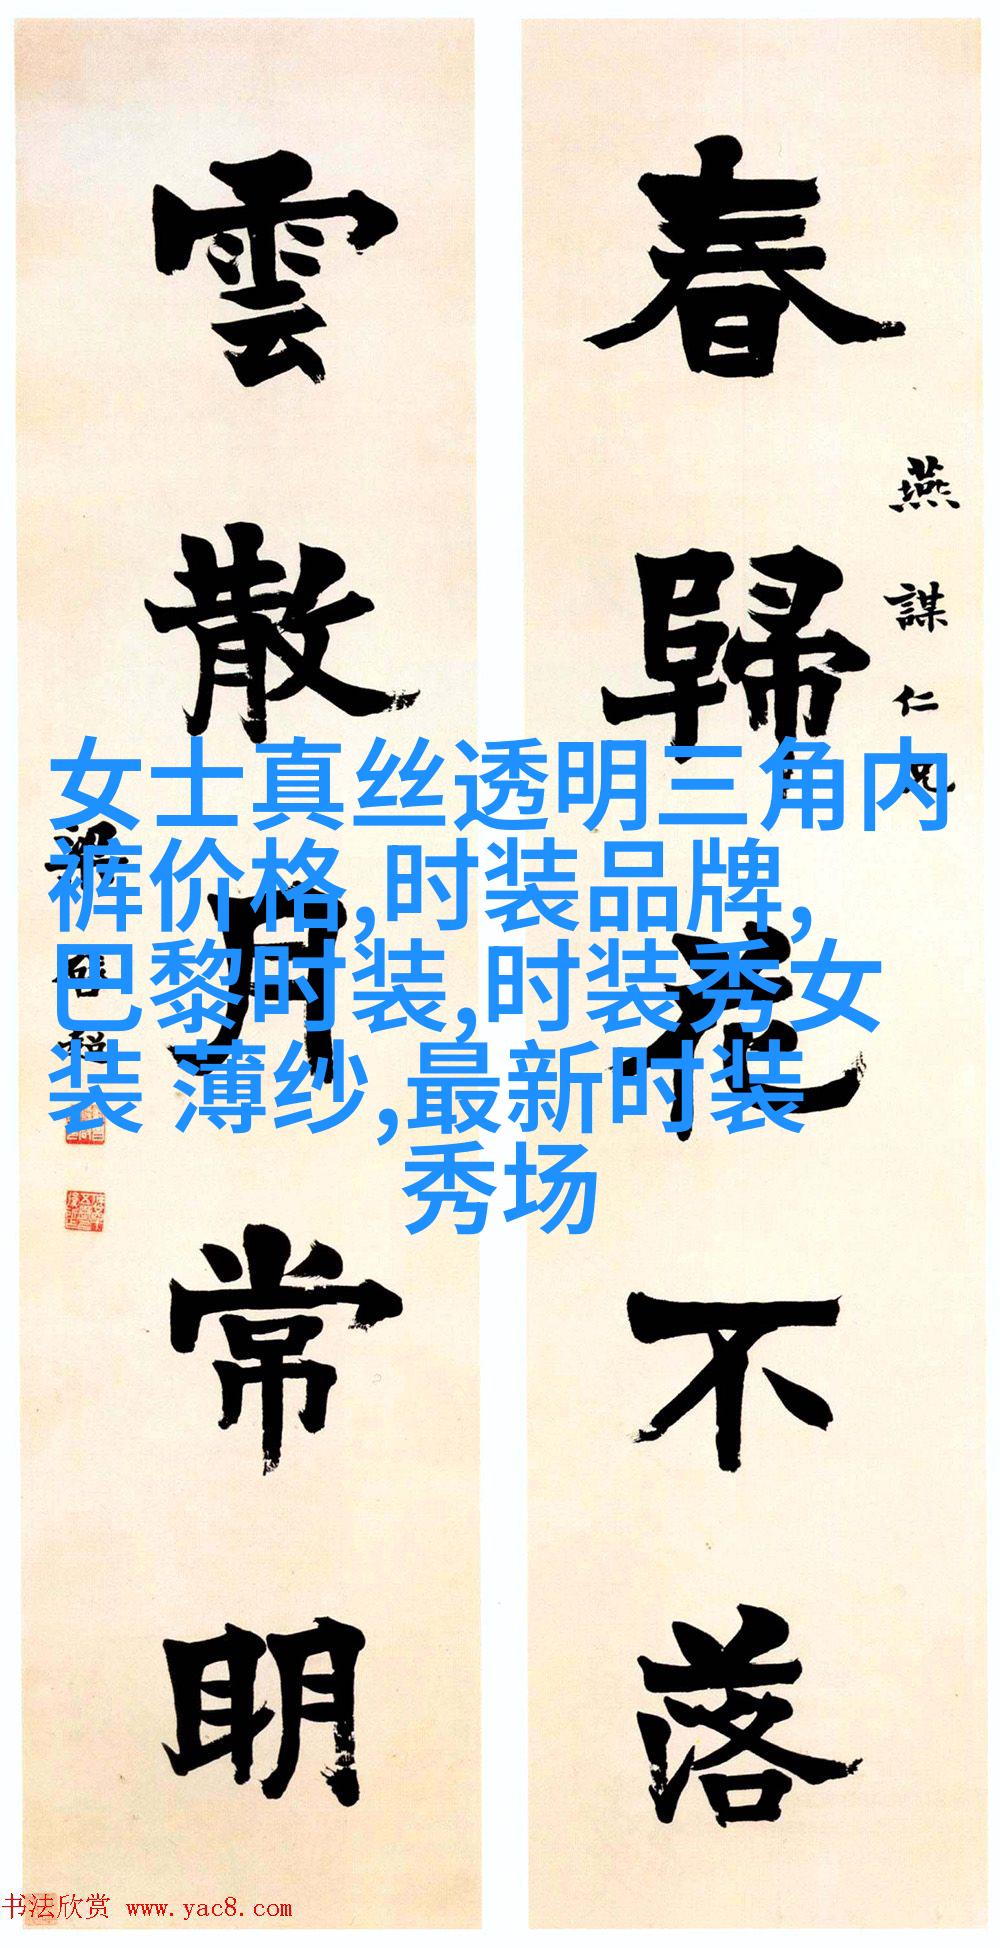 春歸花不落
燕謀仁兄
雲散月常明
梁啟超
女士真丝透明三角内
裤价格,时装品牌,
巴黎时装,时装秀女
装 薄纱,最新时装
秀场
书法欣赏 www.yac8.com